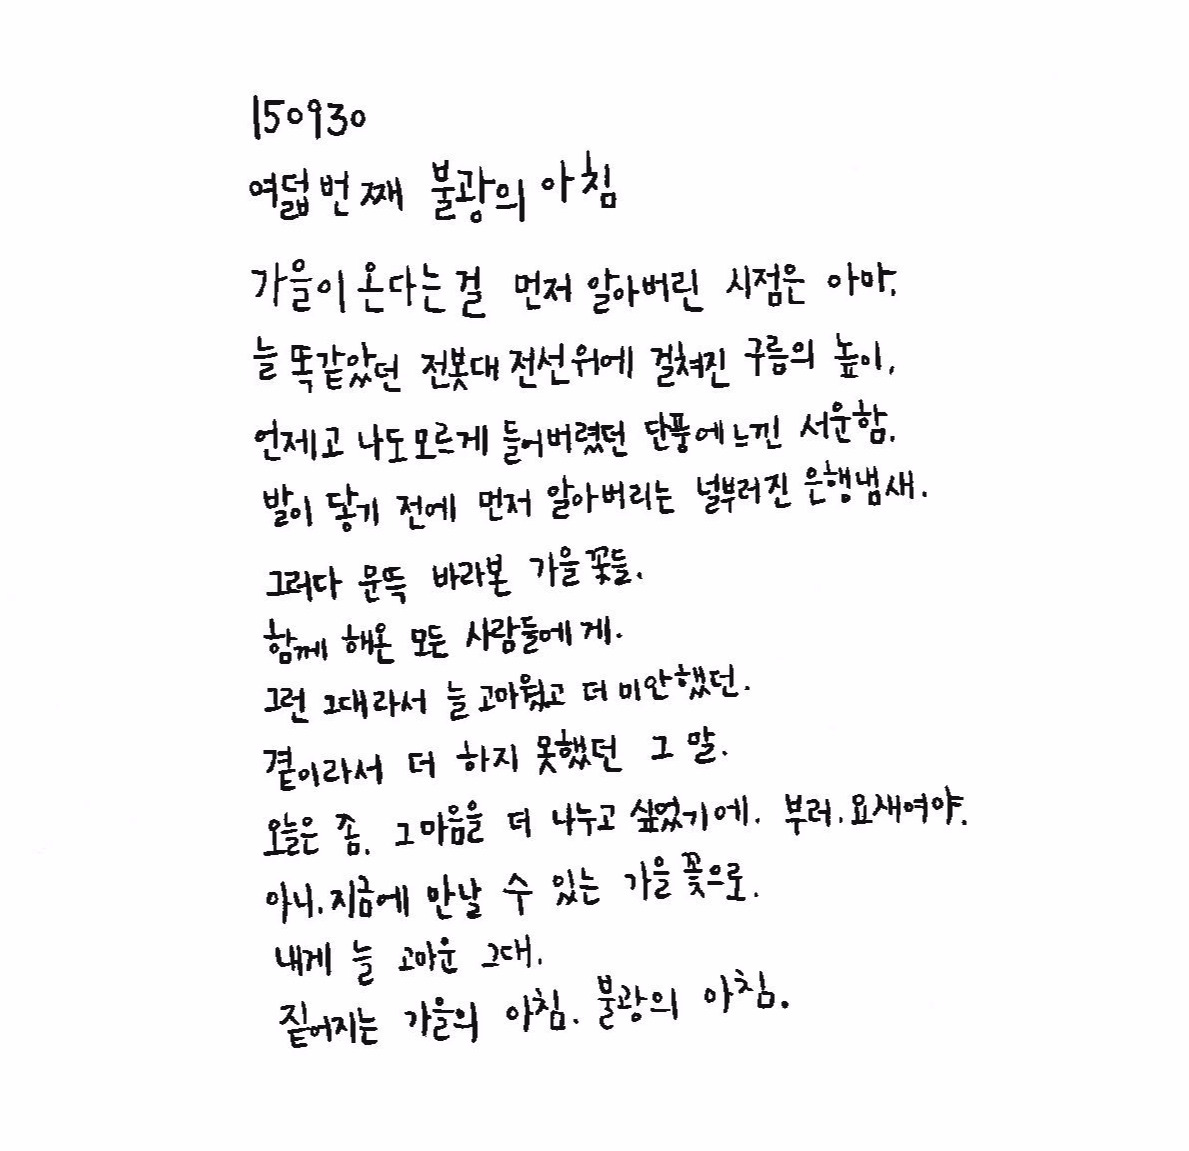 150930
여덟번째 불광의 아침
가을이 온다는걸 먼저 알아버린 시점은 아마,
늘 똑같았던 전봇대 전선위에 걸쳐진 구름의 높이,
언제고 나도모르게 들어버렸던 단풍에 느낀 서운함,
발이 닿기 전에 먼저 알아버리는 널부러진 은행냄새.
그러다 문뜩 바라본 가을꽃들.
함께 해온 모든 사람들에게.
그런 그대라서 늘 고마웠고 더 미안했던.
곁이라서 더 하지 못했던 그 말.
오늘은 좀, 그마음을 더 나누고 싶었기에. 부러, 요새여야,
아니, 지금에 만날 수 있는 가을 꽃으로.
내게 늘 고마운 그대.
짙어지는 가을의 아침. 불광의 아침.